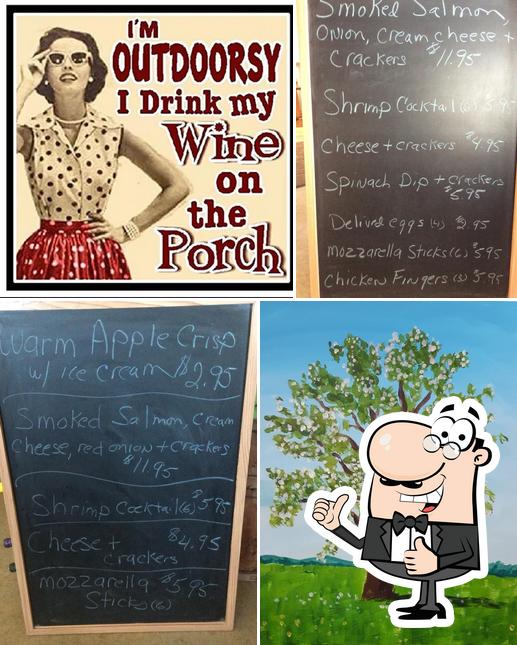 I'M
OUTDOORSY
I Drink my
Wine
on
the
Porch
Smoked Salmon,
Onion, cream cheese +
Crackers $11.95
Shrimp Cocktail (6) 5.9
Cheese + crackers $4.95
Spinach Dip + crackers
$5.95
Delived eggs (4) $2.95
Mozzarella Sticks (6) $5.95
Chicken Fingers (3) $5.95
Warm Apple Crisp
w/ ice cream $2.95
Smoked Salmon, Cream
Cheese, red onion + Crackers
$11.95
Shrimp Cocktail (6) $5.95
Cheese + $4.95
crackers
mozzarella $5.95
Sticks (6)